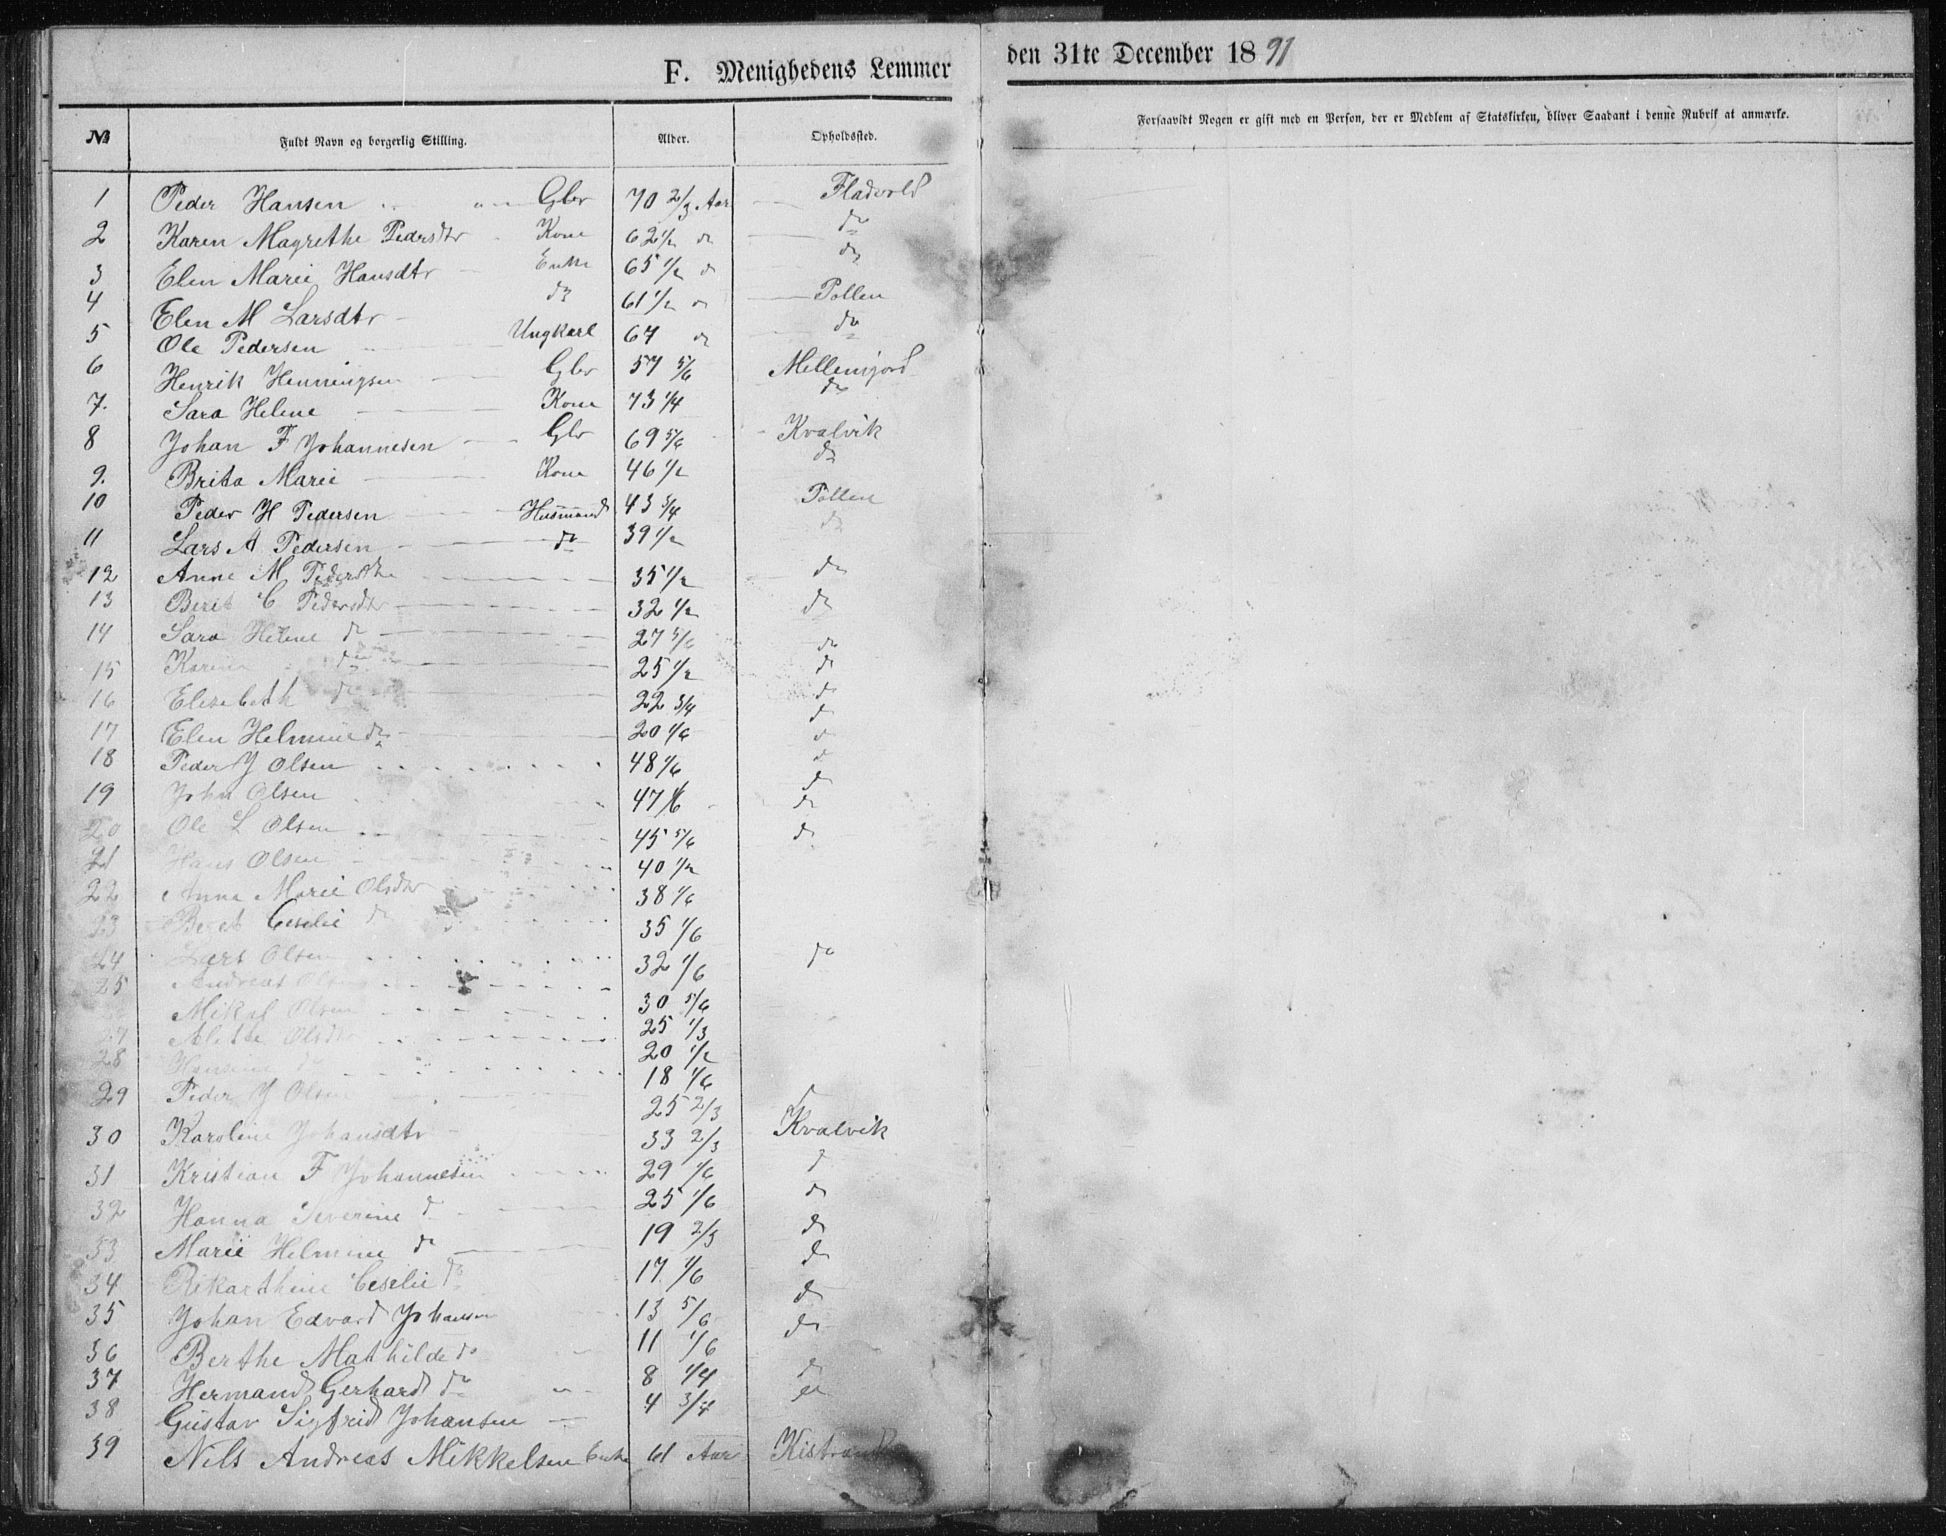 F. Menighedens Lemmer den 31te December 1891
No Fuldt Navn og borgerlig Stilling. Alder. Opholdssted. Forsaavidt Nogen er gift med en Person, der er Medlem af Statskirken, bliver Saadant i denne Rubrik at anmærke.
1 Peder Hansen Gbr 70 2/3 Aar Fladvold
2 Karen Magrethe Pedersdtr Kone 62 1/2 do do
3 Elen Marie Hansdtr Enke 65 1/2 do do
4 Elen M Larsdtr do 61 1/2 do Pollen
5 Ole Pedersen Ungkarl 67 do do
6 Henrik Henningsen Gbr 57 5/6 Mellemfjord
7. Sara Helene Kone 73 1/4 do
8 Johan F Johannesen Gbr 69 5/6 Kvalvik
9. Brita Marie Kone 46 1/2 do
10 Peder H Pedersen Husmand 43 3/4 Pollen
11 Lars A Pedersen do 39 1/2 do
12 Anne M 35 1/2 do
13 Berit C Pedersdtr 32 1/2 do
14 Sara Helene do 27 5/6 do
15 do 25 1/2 do
16 Elisabeth do 22 3/4 do
17 Elen Helmine do 20 1/6 do
18 Peder J Olsen 48 1/6 do
19 John Olsen 47 1/6 do
20 Ole L Olsen 45 5/6 do
21 Hans Olsen 40 1/2 do
22 Anna Marie Olsdtr 38 1/6
23 Beret Ceselie do 35 1/6
24 Lars Olsen 32 1/6 do
25 Andreas Olsen 30 5/6
Mikal Olsen 25 1/3
27 Olsdtr 20 1/2
28 Hansine do 18 1/6
29 Peder J Olsen 25 2/3 do
30 Karoline Johansdtr 33 2/3 Kvalvik
31 Kristian F Johannesen 29 1/6 do
32 Hanna Severine do 25 1/6 do
33 Marie Helmine do 19 2/3 do
34 Rikardhine Ceselie do 17 1/6 do
35 Johan Edvard Johansen 13 5/6 do
36 Berthe Mathilde do 11 1/6 do
37 Hermand Gerhard do 8 1/4 do
38 Gustav Sigfrid Johansen 4 3/4 do
39 Nils Andreas Mikkelsen 61 Aar Kistrand